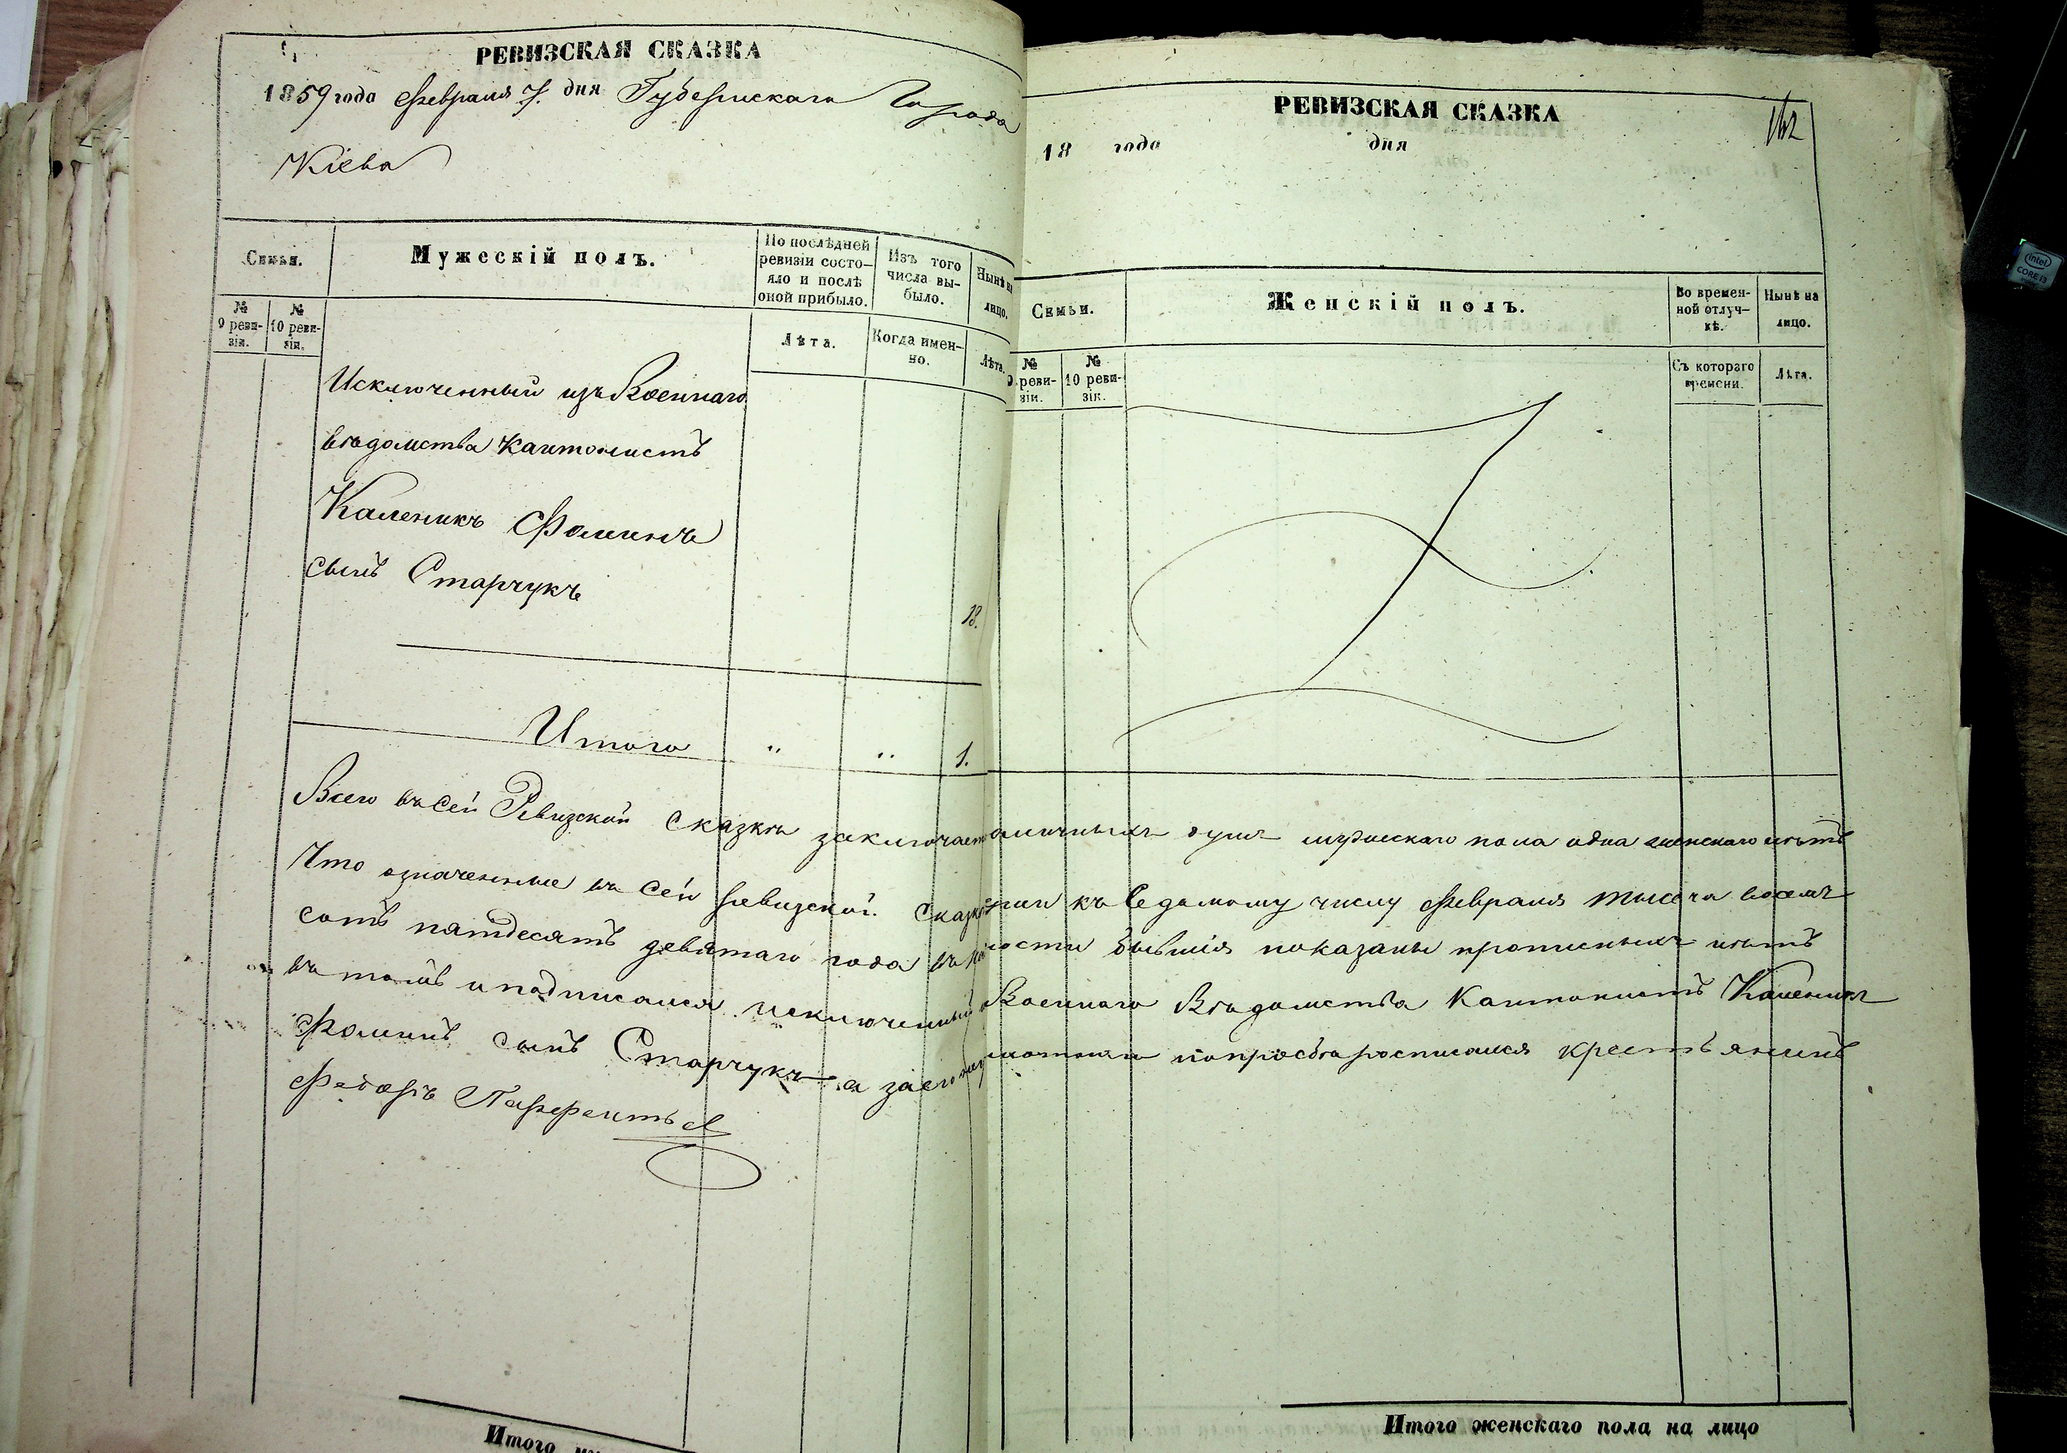 РЕВИЗСКАЯ СКАЗКА
1859 года Февраля 7. дня Губернскаго Города
Кіева
Семьи.
Мужескій полъ.
По послѣдней ревизіи состо-
яло и послѣ оной прибыло.
Изъ того числа вы-
было.
Нынѣ на лицо.
№ 9 реви-
зіи.
№ 10 реви-
зіи.
Лѣта.
Когда имен-
но.
Лѣта.
Исключенный изъ Военнаго
вѣдомства Кантонистъ
Каленикъ Фоминъ
сынъ Старчукъ
13.
Итого " " 1.
РЕВИЗСКАЯ СКАЗКА
162
18 года дня
Семьи.
Женскій полъ.
Во времен-
ной отлуч-
кѣ.
Нынѣ на
лицо.
№
реви-
зіи.
№
10 реви-
зіи.
Съ котораго
времени.
Лѣта.
Всего въ сей Ревизской сказкѣ заключает наличныхъ душъ мужескаго пола одна женскаго нѣтъ
Что означенные въ сей ревизской Сказкѣ къ Седьмому числу Февраля тысяча восемь
сотъ пятдесятъ девятаго года въ бывшія показаны прописныхъ нѣтъ
въ томъ и подписался исключенный Военнаго Вѣдомства Кантонистъ Каленикъ
Фоминъ сынъ Старчукъ а за его попросьбѣ росписался крестьянинъ
Федоръ Парфентьев
Итого
Итого женскаго пола на лицо
intel
CORE i5